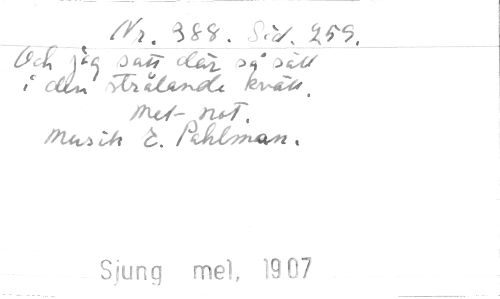 Nr. 388. Sid. 259.
Och jag satt där så sätt
i den strålande kväll.
Mel- not.
Musik E. Pahlman.
Sjung mel, 1907